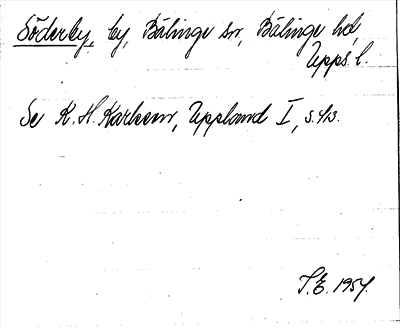 Söderby, by, Bälinge sn, Bälinge hd,
Upps. l.
Se K. H. Karlsson, Uppland I, s.
T. E. 1954.